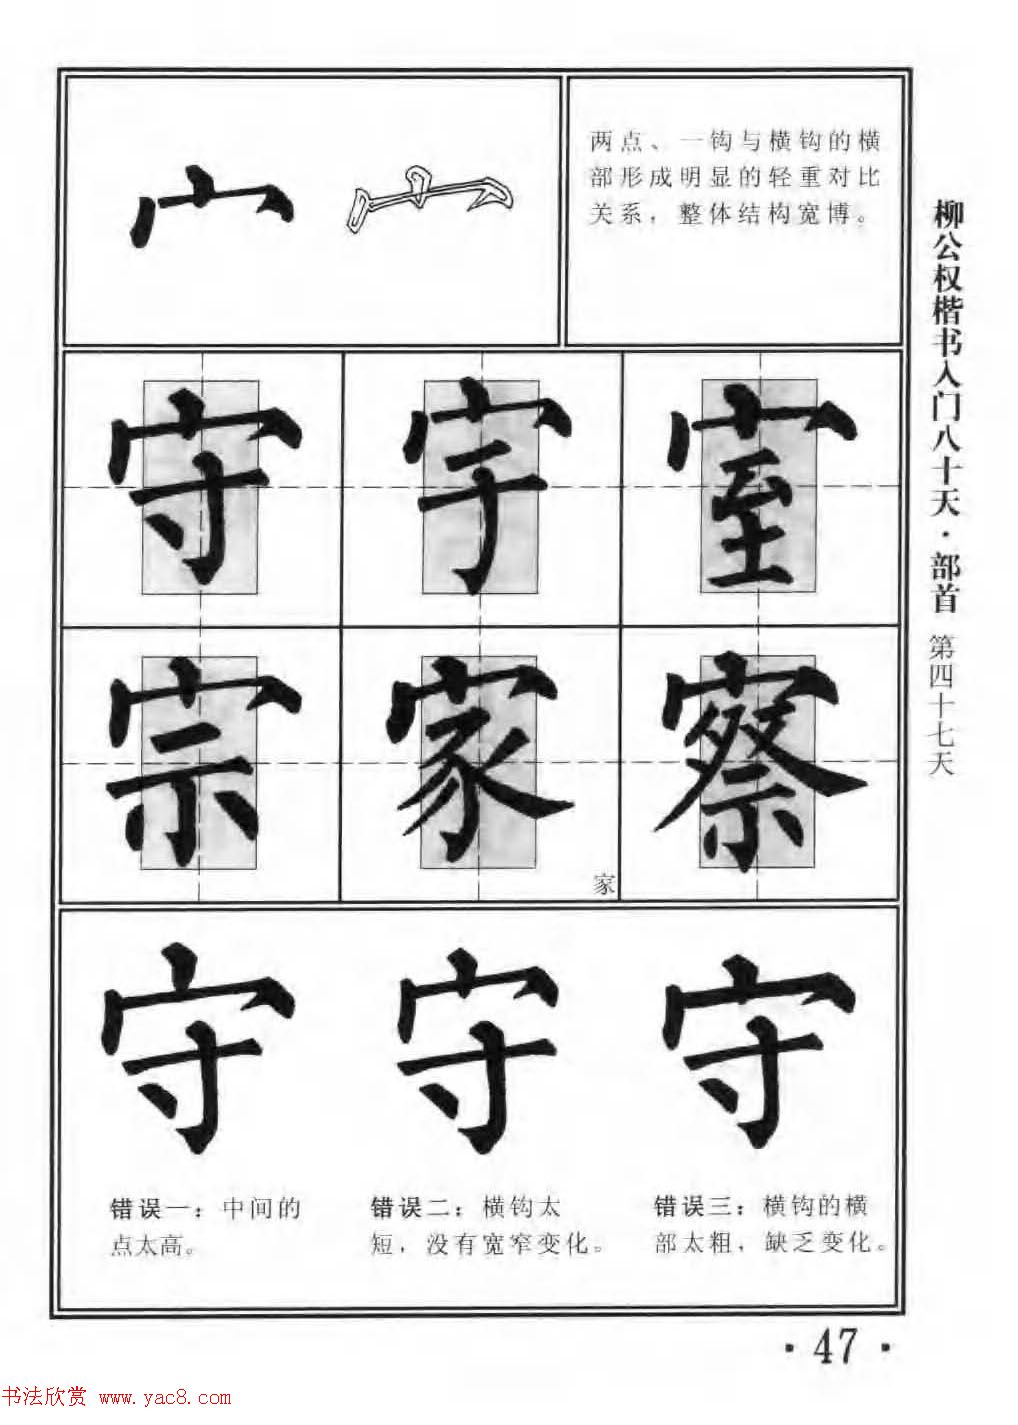 宀
两点、一钩与横钩的横
部形成明显的轻重对比
关系，整体结构宽博。
守 宇 室
宗 家 察
家
守 守 守
错误一：中间的
点太高。
错误二：横钩太
短，没有宽窄变化。
错误三：横钩的横
部太粗，缺乏变化。
柳公权楷书入门八十天·部首 第四十七天
·47·
书法欣赏 www.yac8.com